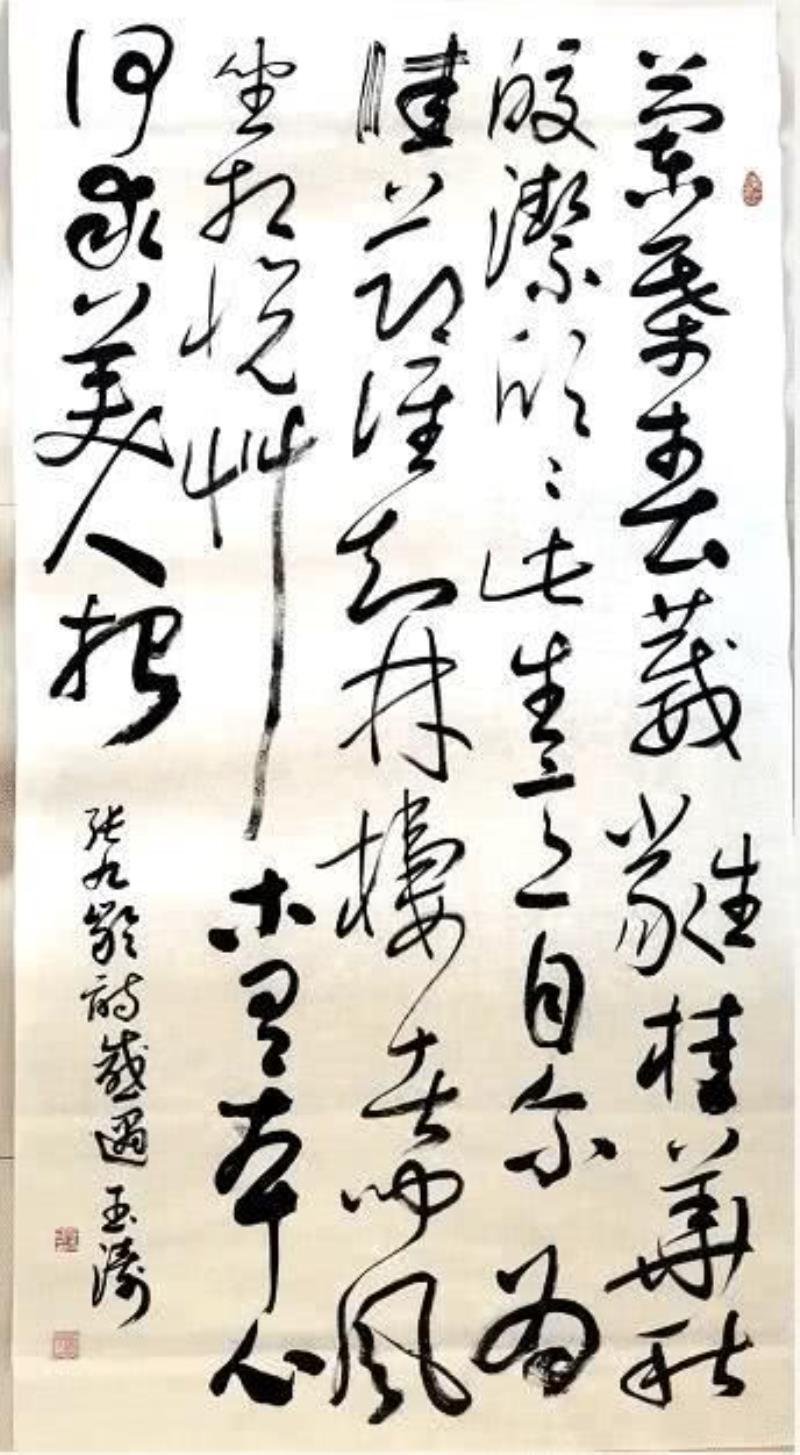 蘭葉春葳蕤桂華秋
皎潔欣〻此生意自尔為
佳節誰知林棲者聞風
坐相悦艸木有本心
何求美人折
張九齡詩感遇 玉濤